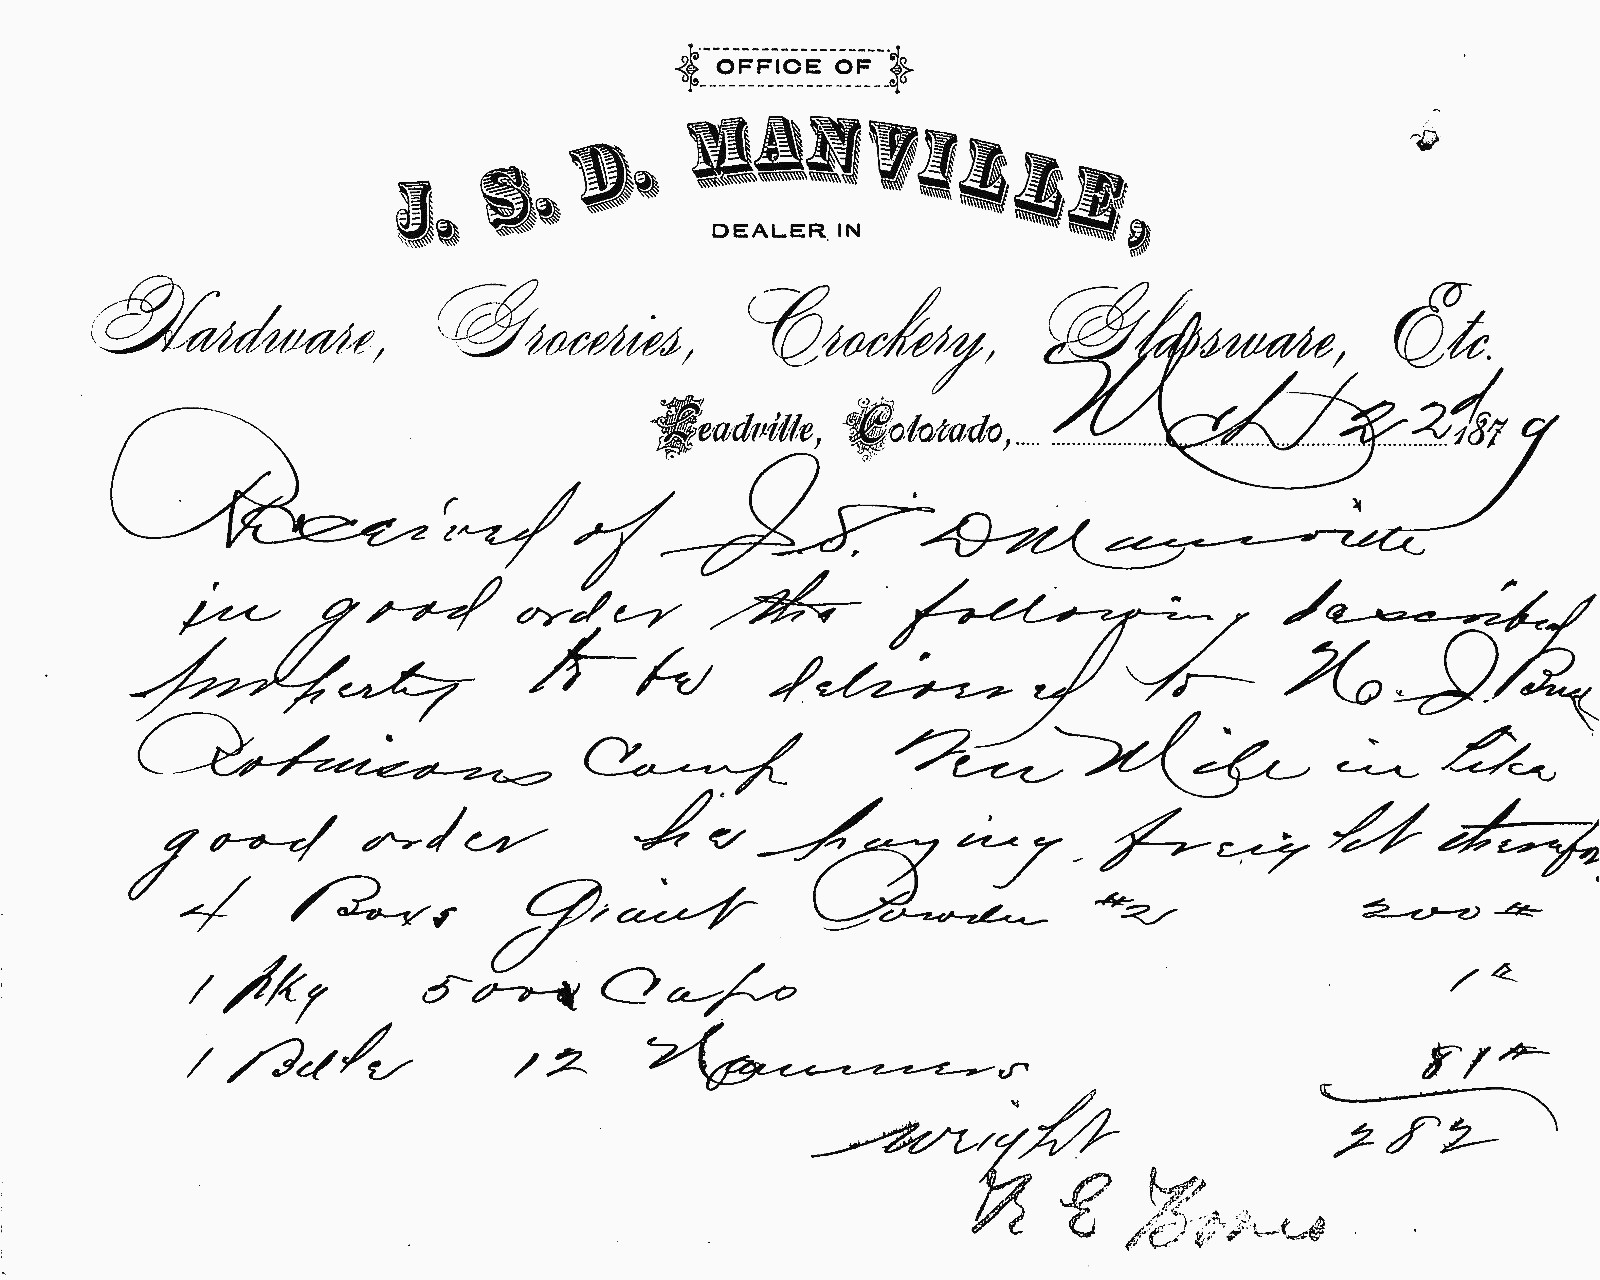 OFFICE OF
J. S. D. MANVILLE,
DEALER IN
Hardware, Groceries, Crockery, Glassware, Etc.
Leadville, Colorado, Mch 22d 1879
Received of J. S. D Manville
in good order the following described
property to be delivered to H. J.
Robinsons Camp Ten Mile in like
good order he paying freight therefor
4 Boxs Giant Powder #2 200 #
1 pkg 500 Caps 1 #
1 Bdle 12 Hammers 81 #
wright 282
R E